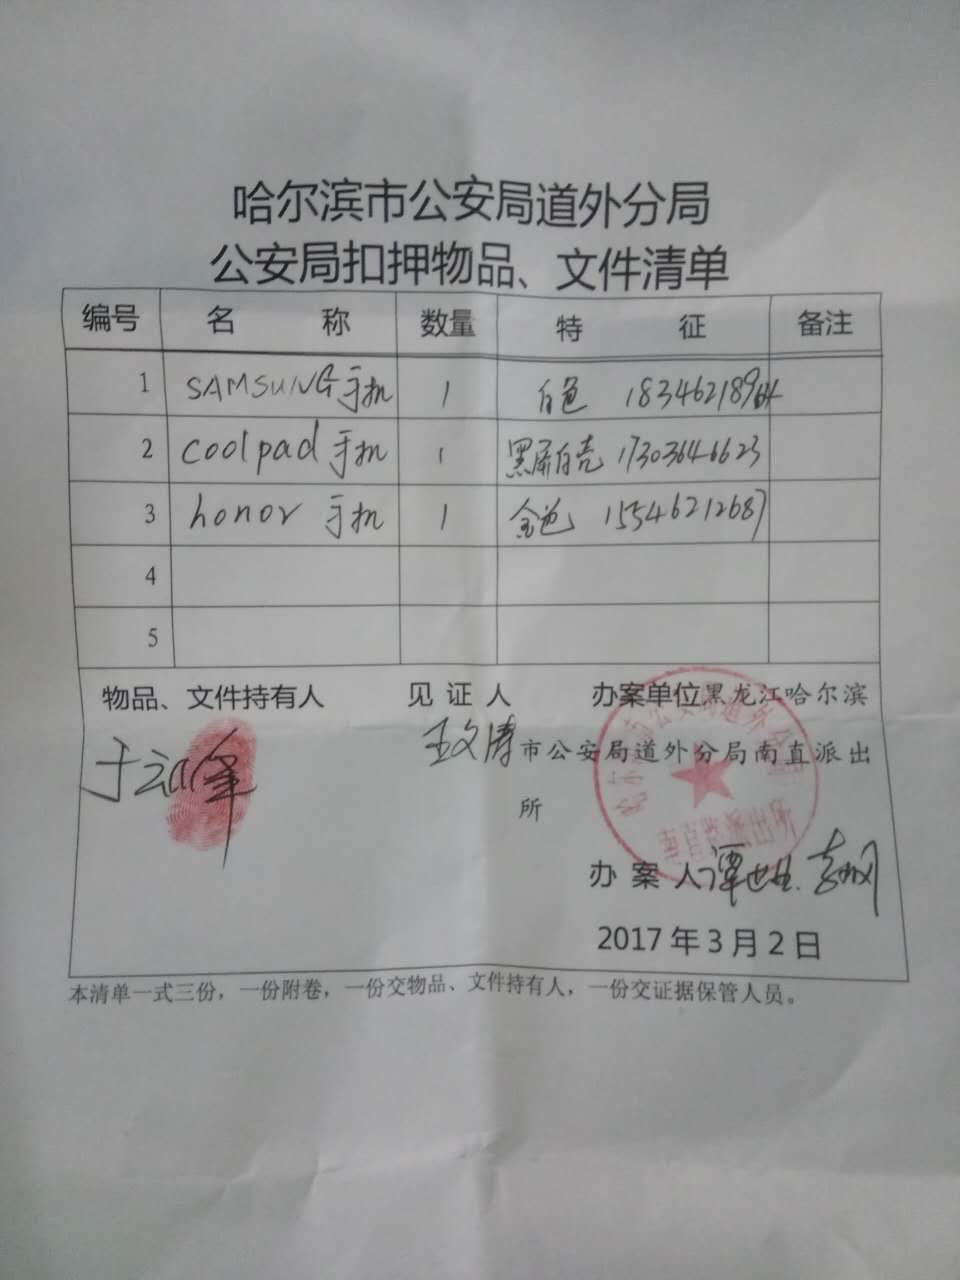 哈尔滨市公安局道外分局
公安局扣押物品、文件清单
编号 名 称 数量 特 征 备注
1 SAMSUNG手机 1 白色 18346218964
2 coolpad手机 1 黑屏白壳 17303646623
3 honor 手机 1 金色 15546212687
4
5
物品、文件持有人 见 证 人 办案单位黑龙江哈尔滨
于 峰 王文涛 市公安局道外分局南直派出
所
办 案 人
2017 年 3 月 2 日
本清单一式三份，一份附卷，一份交物品、文件持有人，一份交证据保管人员。